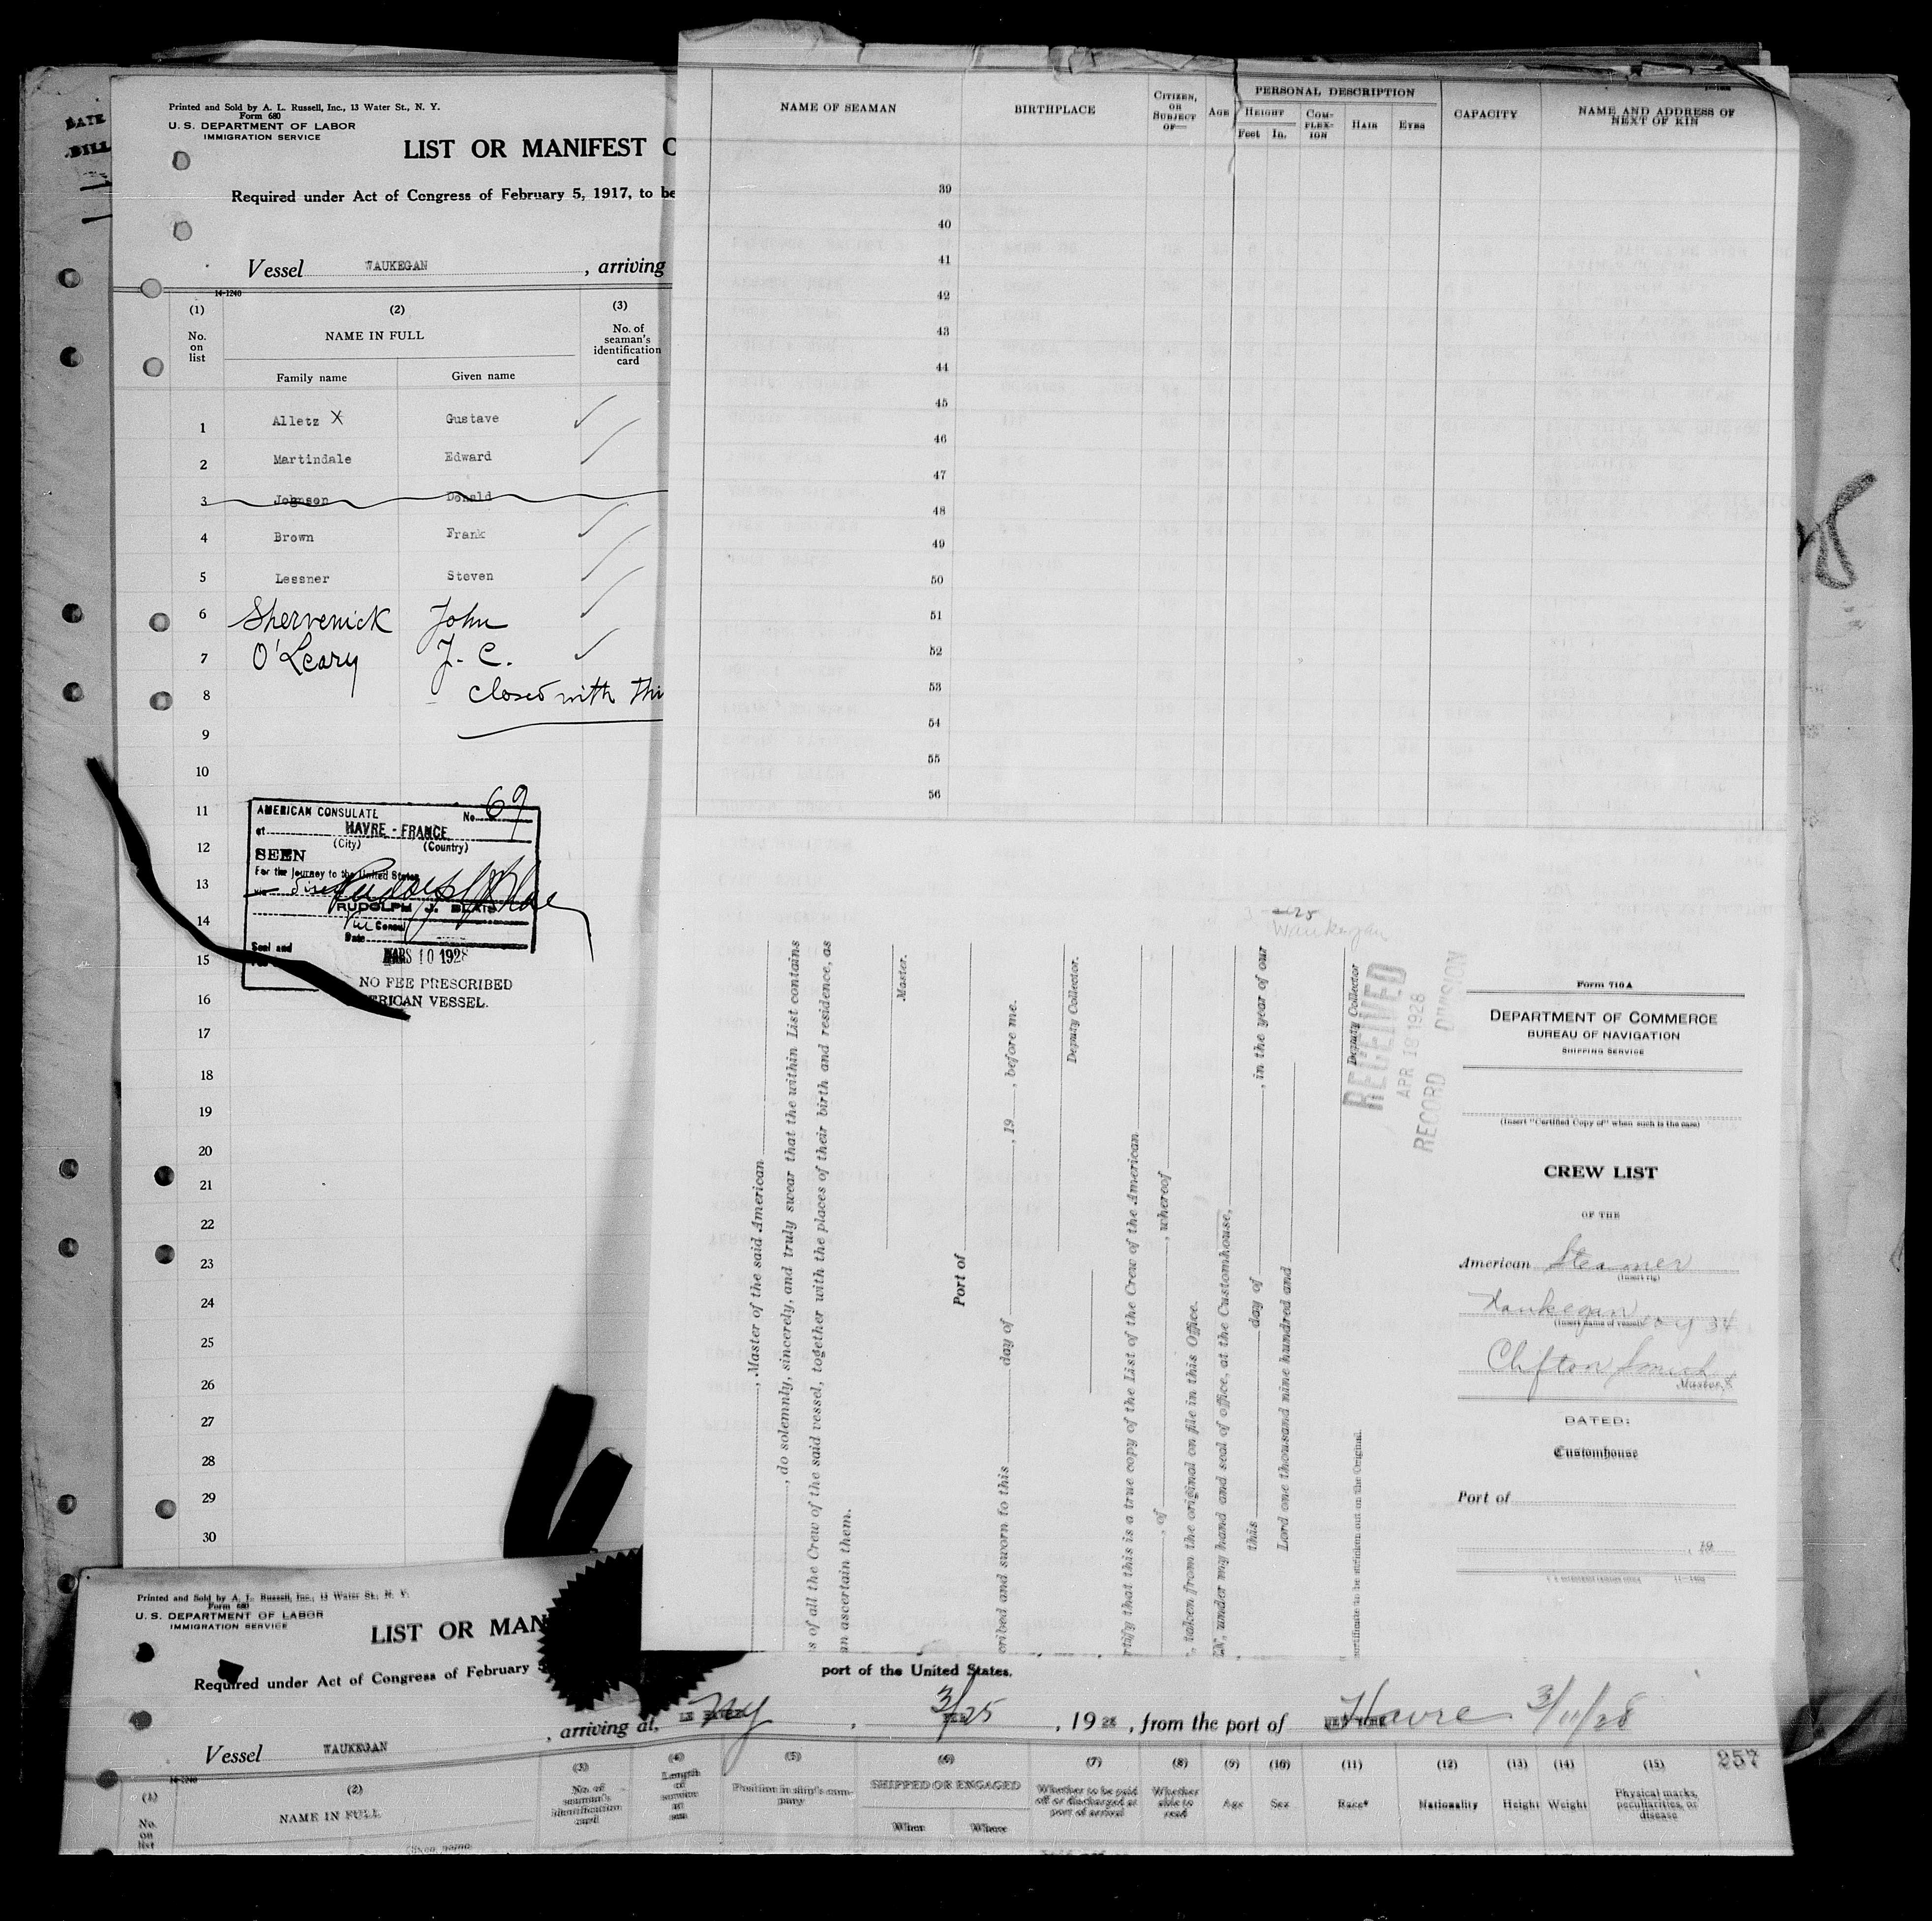 DATE
Printed and Sold by A. L. Russell, Inc., 13 Water St., N. Y.
Form 680
U. S. DEPARTMENT OF LABOR
IMMIGRATION SERVICE
LIST OR MANIFEST
Required under Act of Congress of February 5, 1917, to be
Vessel WAUKEGAN , arriving
14-1240
(1) (2) (3)
No. on list NAME IN FULL No. of seaman's identification card
Family name Given name
1 Alletz X Gustave
2 Martindale Edward
3 Johnson Donald
4 Brown Frank
5 Lessner Steven
6 Shervenick John
7 O'Leary J. C.
8 Closed with thi
9
10
11
12
13
14
15
16
17
18
19
20
21
22
23
24
25
26
27
28
29
30
AMERICAN CONSULATE No. 69
at HAVRE - FRANCE
(City) (Country)
SEEN
For the journey to the United States
via
RUDOLPH J. BLAIS
Vice Consul
Date MARS 10 1928
Seal and
NO FEE PRESCRIBED
ERICAN VESSEL.
NAME OF SEAMAN BIRTHPLACE CITIZEN, OR SUBJECT OF— AGE PERSONAL DESCRIPTION CAPACITY NAME AND ADDRESS OF NEXT OF KIN
HEIGHT COMPLEXION HAIR EYES
Feet In.
39
40
41
42
43
44
45
46
47
48
49
50
51
52
53
54
55
56
25
Waukegan
, Master of the said American
, do solemnly, sincerely, and truly swear that the within List contains
s of all the Crew of the said vessel, together with the places of their birth and residence, as
an ascertain them.
Master.
Port of
ribed and sworn to this day of , 19 , before me.
Deputy Collector.
rtify that this is a true copy of the List of the Crew of the American
, of , whereof
, taken from the original on file in this Office.
, under my hand and seal of office, at the Customhouse,
this day of , in the year of our
Lord one thousand nine hundred and
Deputy Collector
ertificate to be stricken out on the Original.
RECEIVED
APR 18 1928
RECORD DIVISION
Form 710A
DEPARTMENT OF COMMERCE
BUREAU OF NAVIGATION
SHIPPING SERVICE
(Insert "Certified Copy of" when such is the case)
CREW LIST
OF THE
American Steamer
(Insert rig)
Waukegan voy 34
(Insert name of vessel)
Clifton Smith
Master
DATED:
Customhouse
Port of
, 19
Printed and Sold by A. L. Russell, Inc., 13 Water St., N. Y.
Form 680
U. S. DEPARTMENT OF LABOR
IMMIGRATION SERVICE
LIST OR MAN
Required under Act of Congress of February
port of the United States.
Vessel WAUKEGAN , arriving at NY , 3/25 , 19 28 , from the port of Havre 3/11/28
257
14-1240
(1) (2) (3) (4) (5) (6) (7) (8) (9) (10) (11) (12) (13) (14) (15)
No. on list NAME IN FULL No. of seaman's identification card Length of service at sea Position in ship's company SHIPPED OR ENGAGED Whether to be paid off or discharged at port of arrival Whether able to read Age Sex Race* Nationality Height Weight Physical marks, peculiarities, or disease
When Where